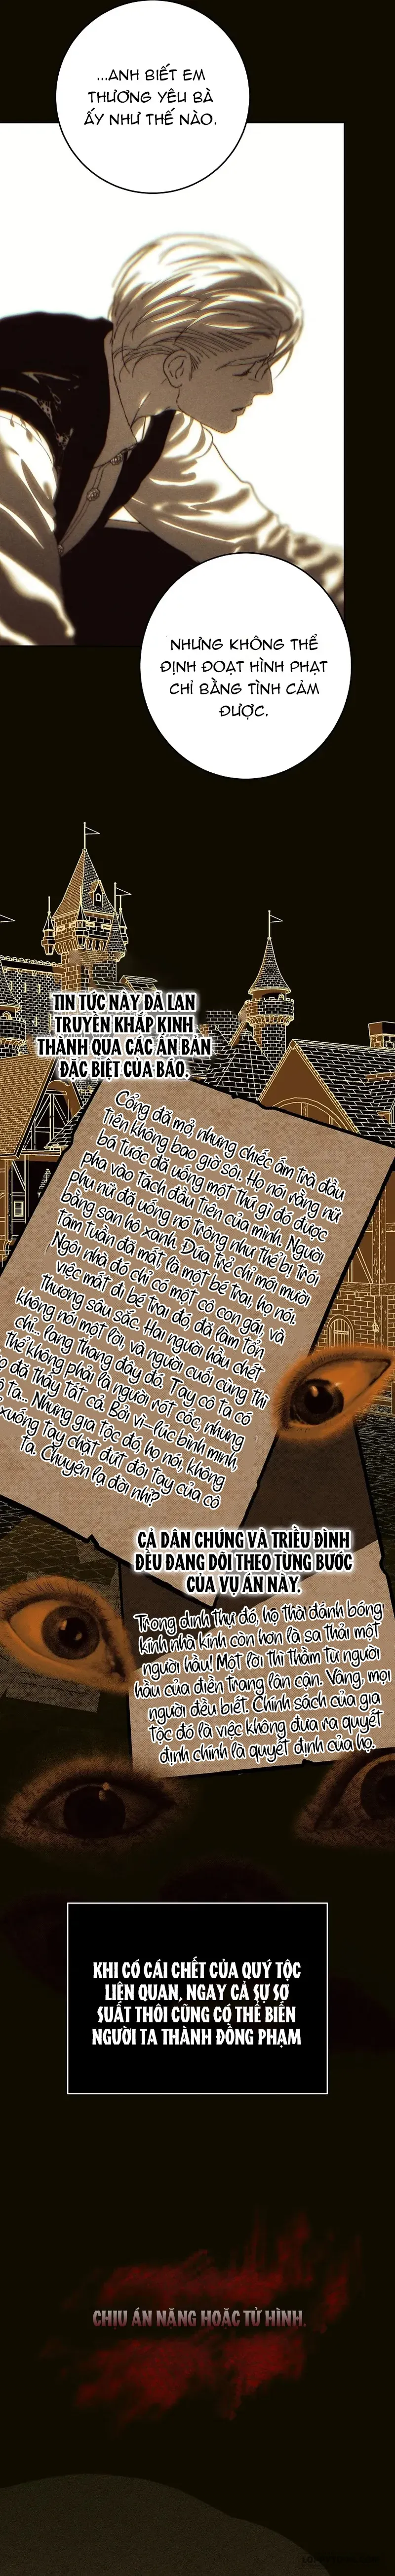 ...ANH BIẾT EM
THƯƠNG YÊU BÀ
ẤY NHƯ THẾ NÀO.
NHƯNG KHÔNG THỂ
ĐỊNH ĐOẠT HÌNH PHẠT
CHỈ BẰNG TÌNH CẢM
ĐƯỢC.
TIN TỨC NÀY ĐÃ LAN
TRUYỀN KHẮP KINH
THÀNH QUA CÁC ẤN BẢN
ĐẶC BIỆT CỦA BÁO.
Cổng đã mở, nhưng chiếc ấm trà đầu
tiên không bao giờ sôi. Họ nói rằng nữ
bá tước đã uống một thứ gì đó được
pha vào tách đầu tiên của mình. Người
phụ nữ đã uống nó trông như thể bị trói
bằng san hô xanh. Đứa trẻ chỉ mới mười
tám tuần đã mất là một bé trai, họ nói.
Ngôi nhà đó chỉ có một cô con gái, và
việc mất đi bé trai đó đã làm tổn
thương sâu sắc. Hai người hầu chết
không nói một lời, và người cuối cùng thì
chỉ... lang thang đâu đó. Tay cô ta có
thể không phải là người rót cốc, nhưng
đã thấy tất cả. Bởi vì—lúc bình minh,
ta... Nhưng gia tộc đó, họ nói, không
xuống tay chặt đứt đôi tay của cô
ta. Chuyện lạ đời nhỉ?
CẢ DÂN CHÚNG VÀ TRIỀU ĐÌNH
ĐỀU ĐANG DÕI THEO TỪNG BƯỚC
CỦA VỤ ÁN NÀY.
Trong dinh thự đó, họ thà đánh bóng
kính nhà kính còn hơn là sa thải một
người hầu! Một lời thì thầm từ người
hầu của điền trang lân cận. Vâng, mọi
người đều biết. Chính sách của gia
tộc đó là việc không đưa ra quyết
định chính là quyết định của họ.
KHI CÓ CÁI CHẾT CỦA QUÝ TỘC
LIÊN QUAN, NGAY CẢ SỰ SƠ
SUẤT THÔI CŨNG CÓ THỂ BIẾN
NGƯỜI TA THÀNH ĐỒNG PHẠM
CHỊU ÁN NẶNG HOẶC TỬ HÌNH.